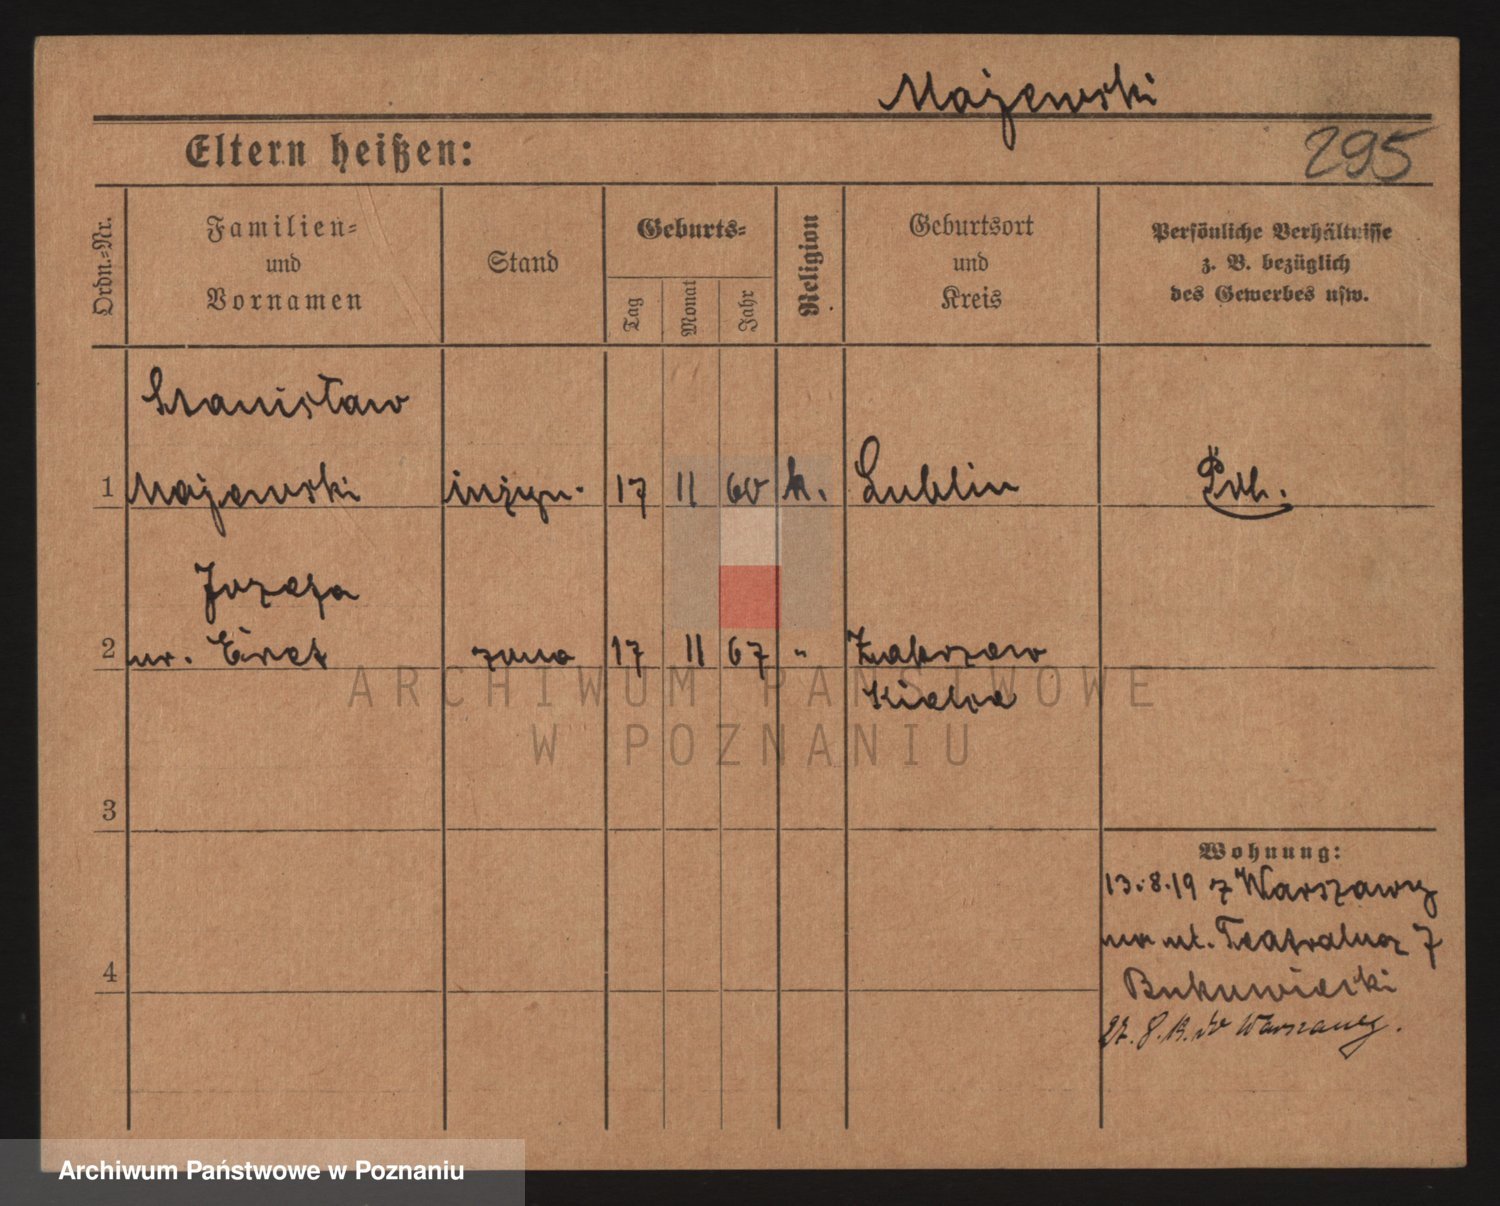 Majewski
295
Eltern heißen:
Ordn.-Nr.
Familien-
und
Vornamen
Stand
Geburts-
Tag
Monat
Jahr
Religion
Geburtsort
und
Kreis
Persönliche Verhältnisse
z. B. bezüglich
des Gewerbes usw.
Stanisław
1 Majewski inżyn. 17 11 60 k. Lublin
Józefa
2 ur. żona 17 11 67 "
Kielce
ARCHIWUM PAŃSTWOWE
W POZNANIU
3
Wohnung:
13.8.19 z Warszawy
na ul. Teatralna 7
4
Bukowiecki
27. 8. 19. do Warszawy.
Archiwum Państwowe w Poznaniu